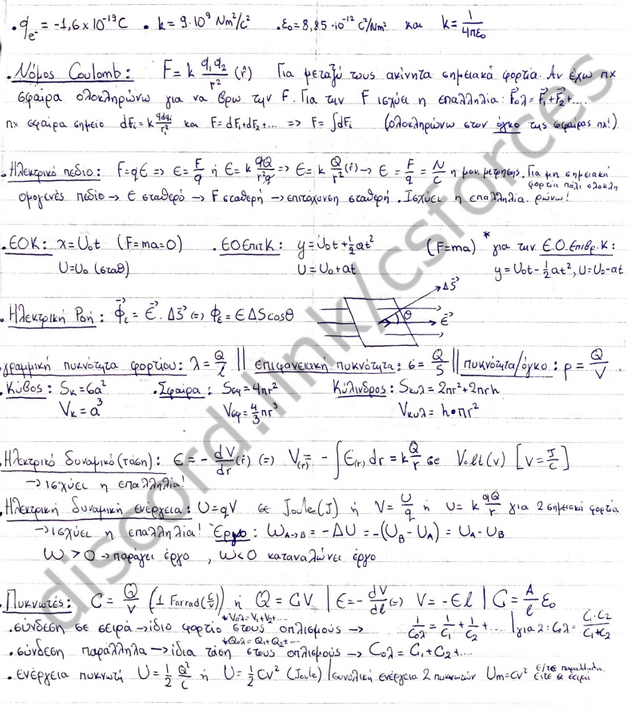 • q_e- = -1,6×10^-19 C • k = 9·10^9 Nm²/c² • ε₀ = 8,85·10^-12 C²/Nm² και k = 1/4πε₀
• Νόμος Coulomb: F = k q₁q₂/r² (r̂) Για μεταξύ τους ακίνητα σημειακά φορτία. Αν έχω πχ
σφαίρα ολοκληρώνω για να βρω την F. Για την F ισχύει η επαλληλία: F⃗ολ = F⃗₁+F⃗₂+...
πχ σφαίρα σημείο dFi = k qdqi/ri² και F = dF₁+dF₂+... => F = ∫dFi (ολοκληρώνω στον όγκο της σφαίρας πχ!).
• Ηλεκτρικό πεδίο: F = qE => E = F/q ή E = k qQ/r²q => E = k Q/r² (r̂) → E = F/q = N/C η μον. μέτρησης. Για μη σημειακά
φορτία πάλι ολοκλη
ομογενές πεδίο → E σταθερό → F σταθερή → επιτάχυνση σταθερή. Ισχύει η επαλληλία. ρώνω!
• ΕΟΚ: x = U₀t (F=ma=0) • ΕΟΕπιτΚ: y = U₀t+½at² (F=ma) * για την Ε.Ο.Επιβρ.Κ:
U = U₀ (σταθ) U = U₀+at y = U₀t-½at², U=U₀-at
• Ηλεκτρική Ροή: Φ⃗ε = E⃗·ΔS⃗ (=) Φε = EΔScosθ
ΔS⃗ θ E⃗
γραμμική πυκνότητα φορτίου: λ = Q/l || επιφανειακή πυκνότητα: σ = Q/S || πυκνότητα/όγκο: ρ = Q/V
• Κύβος: Sκ = 6a² • Σφαίρα: Sσφ = 4πr² Κύλινδρος: Sκυλ = 2πr²+2πrh
Vκ = a³ Vσφ = 4/3 πr³ Vκυλ = h•πr²
• Ηλεκτρικό δυναμικό (τάση): E = -dV/dr (r̂) (=) V(r) = -∫E(r)dr = k Q/r σε Volt(v) [V = J/C]
→ ισχύει η επαλληλία!
• Ηλεκτρική δυναμική ενέργεια: U = qV σε Joule(J) ή V = U/q ή U = k qQ/r για 2 σημειακά φορτία
→ ισχύει η επαλληλία! Έργο: W_A→B = -ΔU = -(U_B - U_A) = U_A - U_B
W > 0 → παράγει έργο , W<0 καταναλώνει έργο
• Πυκνωτές: C = Q/V (1 Farrad(C/V)) ή Q = CV | E = -dV/dl (=) V = -El | C = A/l ε₀
*Vολ = V₁+V₂+...
• σύνδεση σε σειρά → ίδιο φορτίο στους οπλισμούς → 1/Cολ = 1/C₁ + 1/C₂ +... | για 2: Cολ = C₁·C₂/C₁+C₂
*Qολ = Q₁+Q₂+...
• σύνδεση παράλληλα → ίδια τάση στους οπλισμούς → Cολ = C₁+C₂+...
• ενέργεια πυκνωτή U = ½ Q²/C ή U = ½ CV² (Joule) | συνολική ενέργεια 2 πυκνωτών Um = CV² είτε παράλληλα
είτε σε σειρά
discord.link/csforces